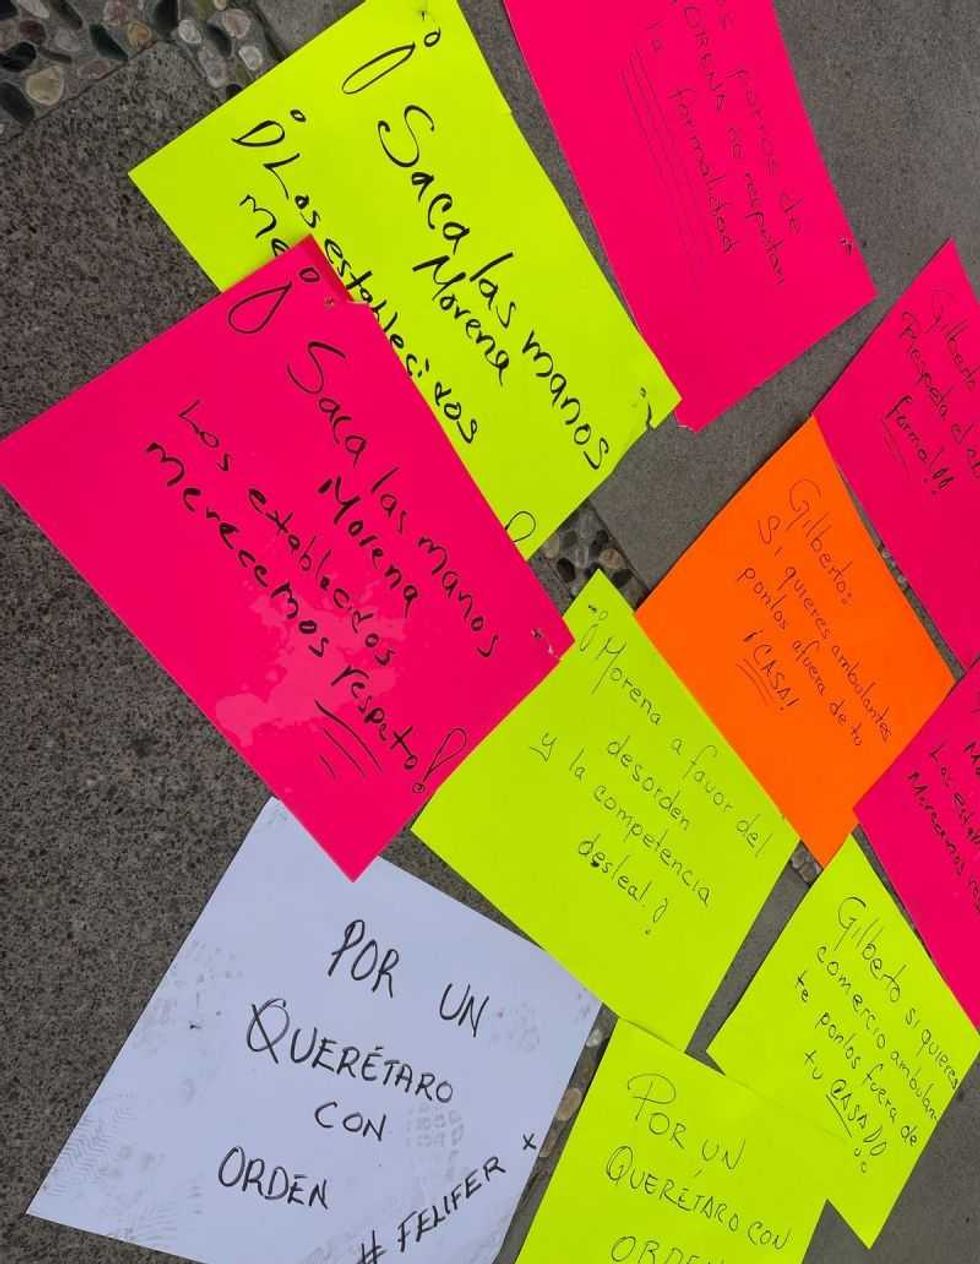 ¡Saca las manos
Morena
¡Los establecidos
me
Los foros de
MORENA no respetan
la formalidad
¡Saca las manos
Morena
Los establecidos
merecemos respeto!
Gilberto
Respeta el
formal!!!
Gilberto:
Si quieres ambulantes
ponlos afuera de tu
¡CASA!
¡Morena a favor del
desorden
y la competencia
desleal!
Los
Merecemos
Gilberto si quieres
comercio ambulan-
te ponlos fuera de
tu CASA!!
POR UN
QUERÉTARO
CON
ORDEN
# FELIFER X
POR UN
QUERÉTARO CON
ORDEN